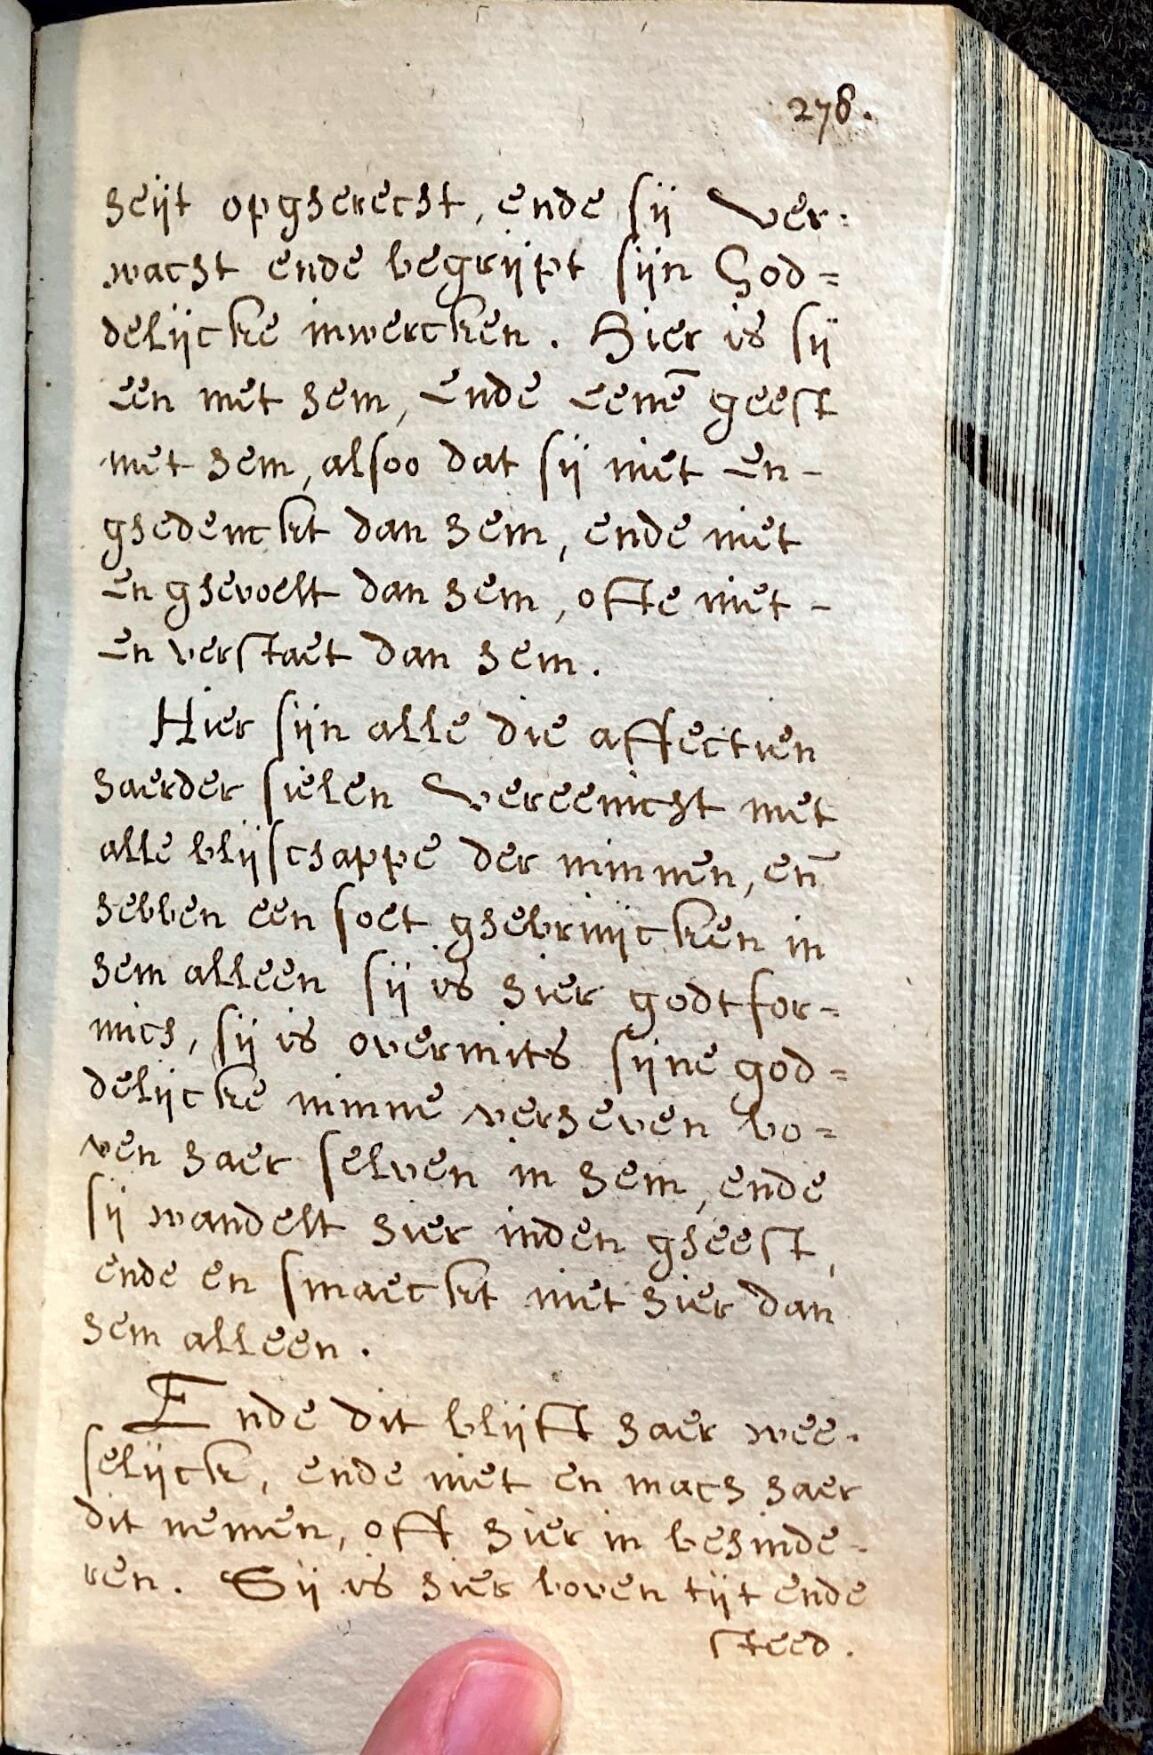 278.
heijt opgherecht, ende sij ver:
wacht ende begrijpt sijn God=
delijcke inwercken. Hier is sij
een met hem, ende eenē geest
met hem, alsoo dat sij niet en-
ghedenckt dan hem, ende niet
en ghevoelt dan hem, ofte niet-
en verstaet dan hem.
Hier sijn alle die affectien
haerder sielen vereenicht met
alle blijschappe der minnen, eñ
hebben een soet ghebruijcken in
hem alleen sij is hier godtfor-
mich, sij is overmits sijne god=
delijcke minne verheven bo=
ven haer selven in hem, ende
sij wandelt hier inden gheest,
ende en smaeckt niet hier dan
hem alleen.
Ende dit blijft haer wee-
selijck, ende niet en mach haer
dit nemen, oft hier in behinde-
ren. Sij is hier boven tijt ende
steed.